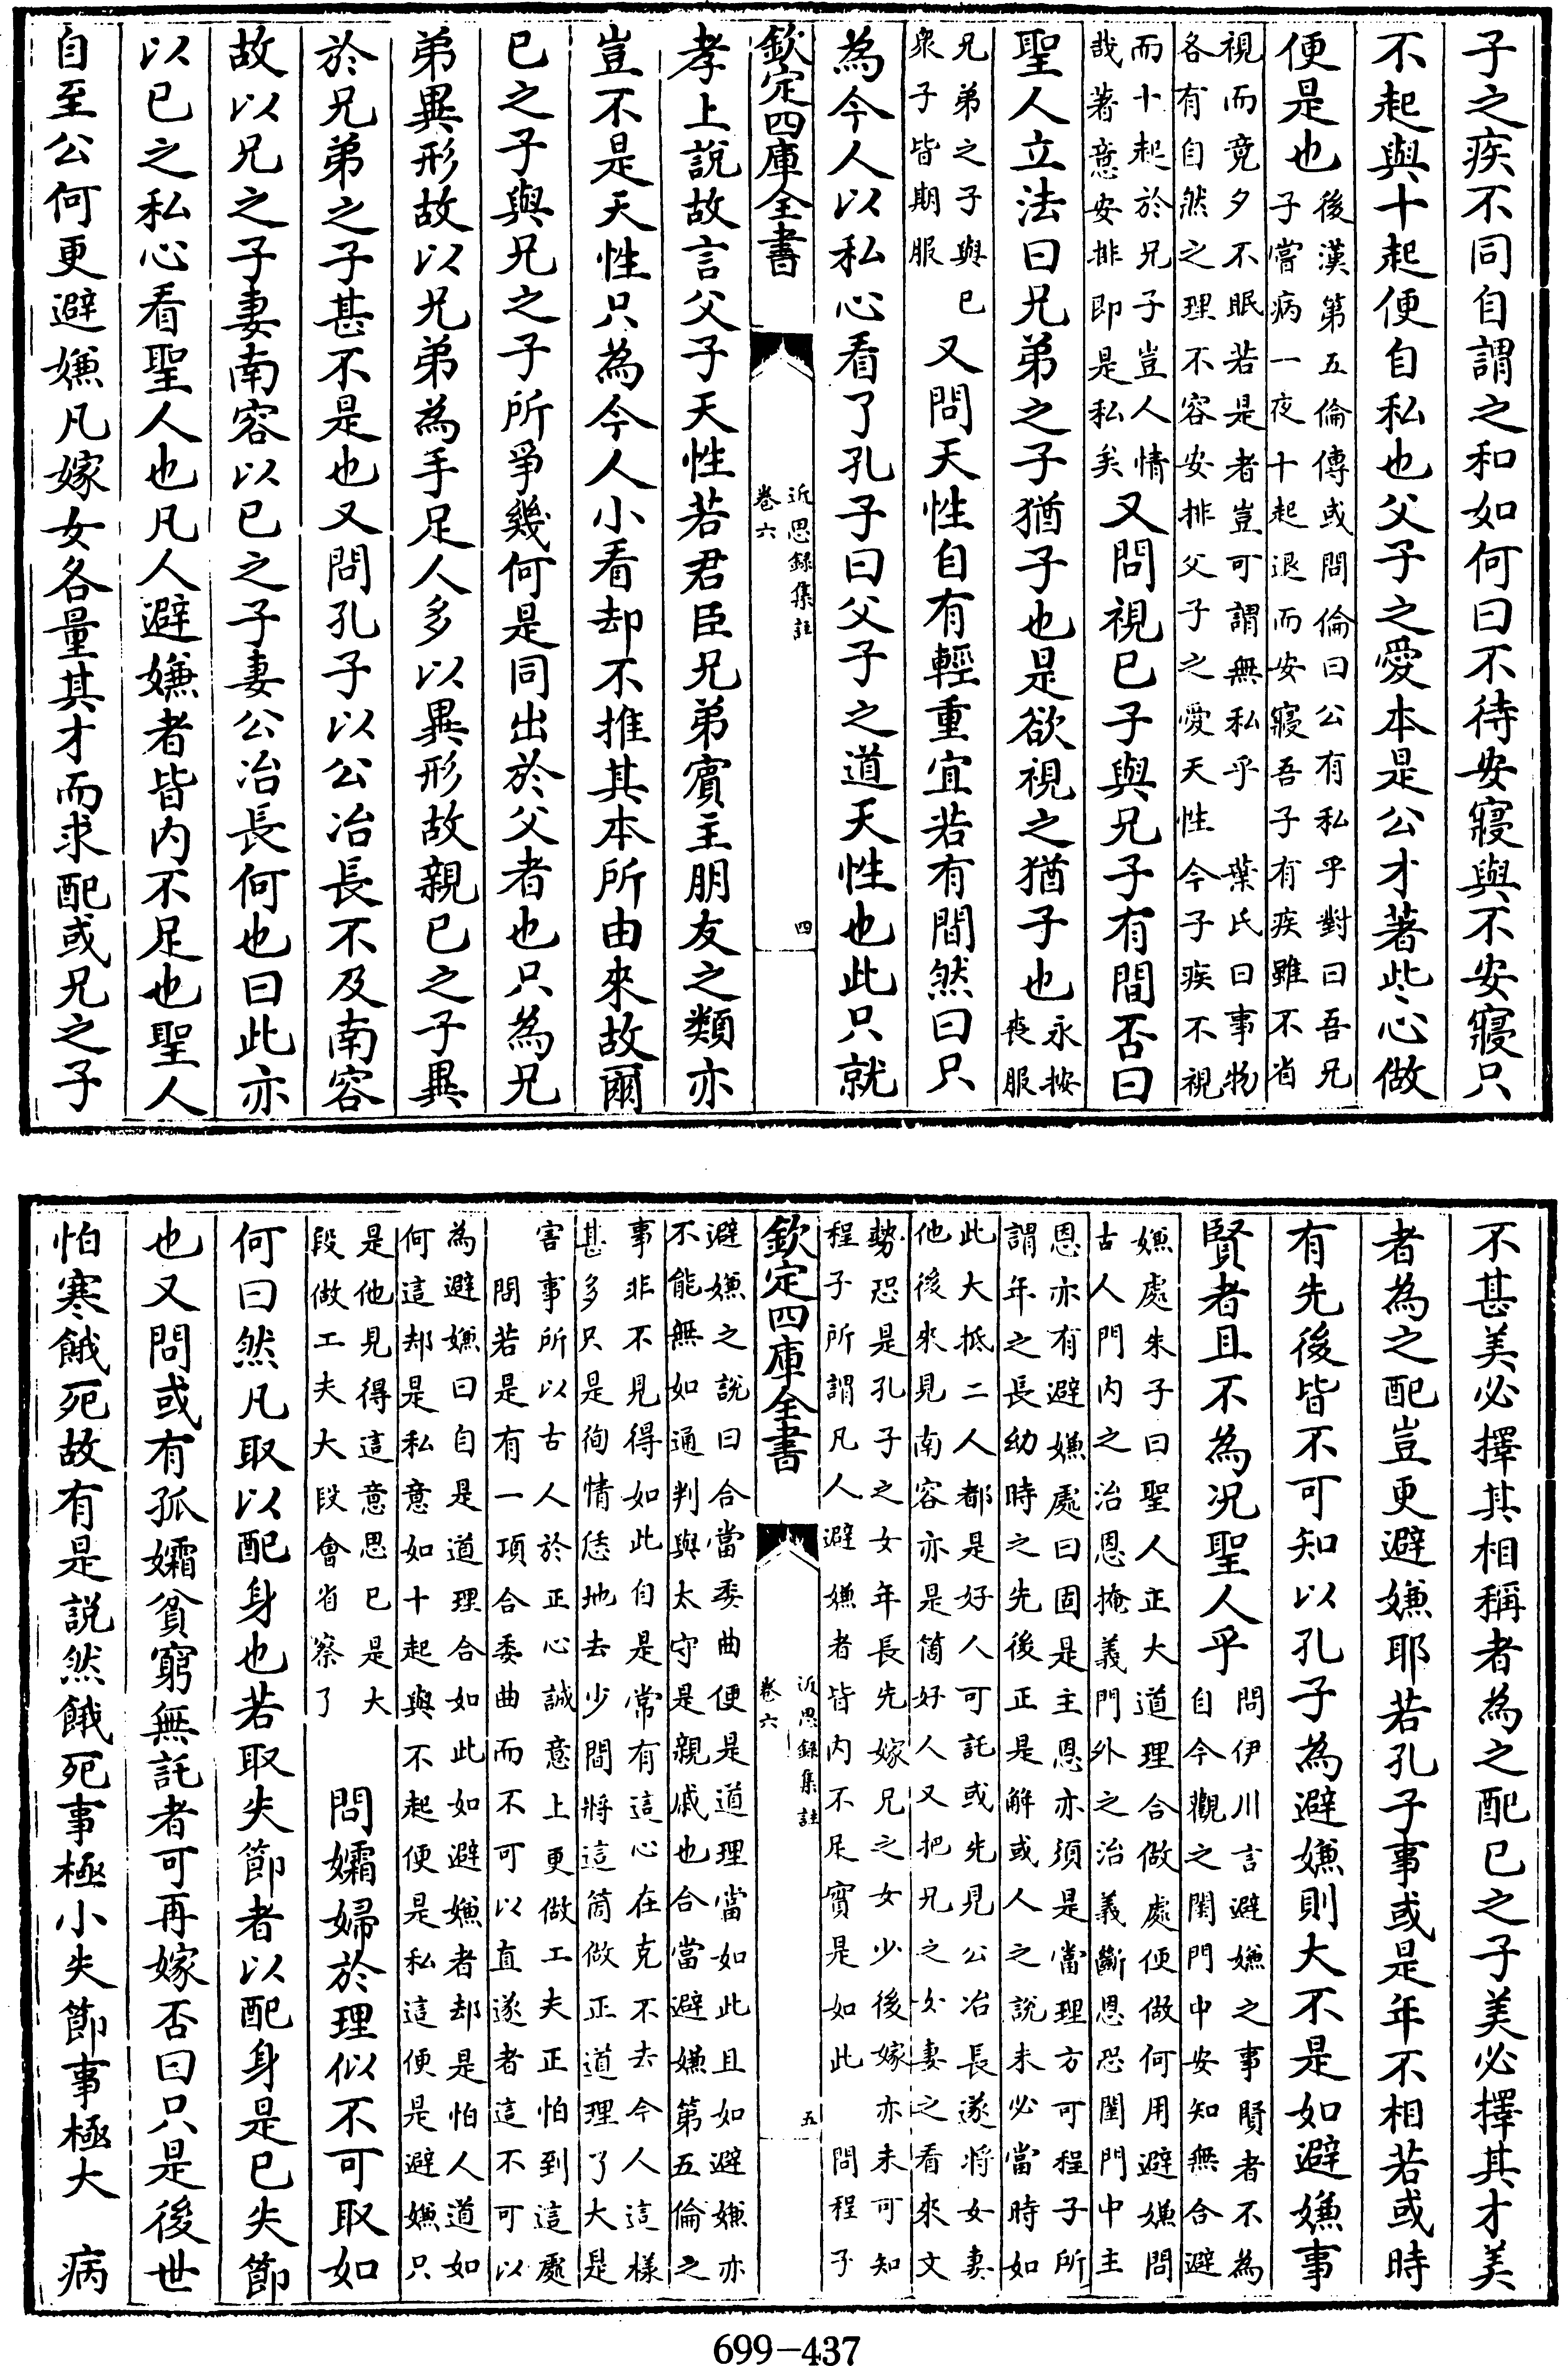 子之疾不同自謂之和如何曰不待安寢與不安寢只
不起與十起便自私也父子之愛本是公才著些心做
便是也後漢第五倫傳或問倫曰公有私乎對曰吾兄
子嘗病一夜十起退而安寢吾子有疾雖不省
視而竟夕不眠若是者豈可謂無私乎　葉氏曰事物
各有自然之理不容安排父子之愛天性今子疾不視
而十起於兄子豈人情
哉著意安排即是私矣又問視已子與兄子有間否曰
聖人立法曰兄弟之子猶子也是欲視之猶子也永按
喪服
兄弟之子與已
衆子皆期服又問天性自有輕重宜若有間然曰只
為今人以私心看了孔子曰父子之道天性也此只就
欽定四庫全書
近思録集註
卷六
四
孝上說故言父子天性若君臣兄弟賓主朋友之類亦
豈不是天性只為今人小看却不推其本所由來故爾
已之子與兄之子所爭幾何是同出於父者也只為兄
弟異形故以兄弟為手足人多以異形故親已之子異
於兄弟之子甚不是也又問孔子以公冶長不及南容
故以兄之子妻南容以已之子妻公冶長何也曰此亦
以已之私心看聖人也凡人避嫌者皆内不足也聖人
自至公何更避嫌凡嫁女各量其才而求配或兄之子
不甚美必擇其相稱者為之配已之子美必擇其才美
者為之配豈更避嫌耶若孔子事或是年不相若或時
有先後皆不可知以孔子為避嫌則大不是如避嫌事
賢者且不為况聖人乎問伊川言避嫌之事賢者不為
自今觀之閨門中安知無合避
嫌處朱子曰聖人正大道理合做處便做何用避嫌問
古人門内之治恩掩義門外之治義斷恩恐閨門中主
恩亦有避嫌處曰固是主恩亦須是當理方可程子所
謂年之長幼時之先後正是解或人之說未必當時如
此大抵二人都是好人可託或先見公冶長遂將女妻
他後來見南容亦是箇好人又把兄之女妻之看來文
勢恐是孔子之女年長先嫁兄之女少後嫁亦未可知
程子所謂凡人避嫌者皆内不足實是如此　問程子
欽定四庫全書
近思録集註
卷六
五
避嫌之說曰合當委曲便是道理當如此且如避嫌亦
不能無如通判與太守是親戚也合當避嫌第五倫之
事非不見得如此自是常有這心在克不去今人這樣
甚多只是徇情恁地去少間將這箇做正道理了大是
害事所以古人於正心誠意上更做工夫正怕到這處
問若是有一項合委曲而不可以直遂者這不可以
為避嫌曰自是道理合如此如避嫌者却是怕人道如
何這却是私意如十起與不起便是私這便是避嫌只
是他見得這意思已是大
段做工夫大段會省察了　問孀婦於理似不可取如
何曰然凡取以配身也若取失節者以配身是已失節
也又問或有孤孀貧窮無託者可再嫁否曰只是後世
怕寒餓死故有是説然餓死事極小失節事極大　病
699-437